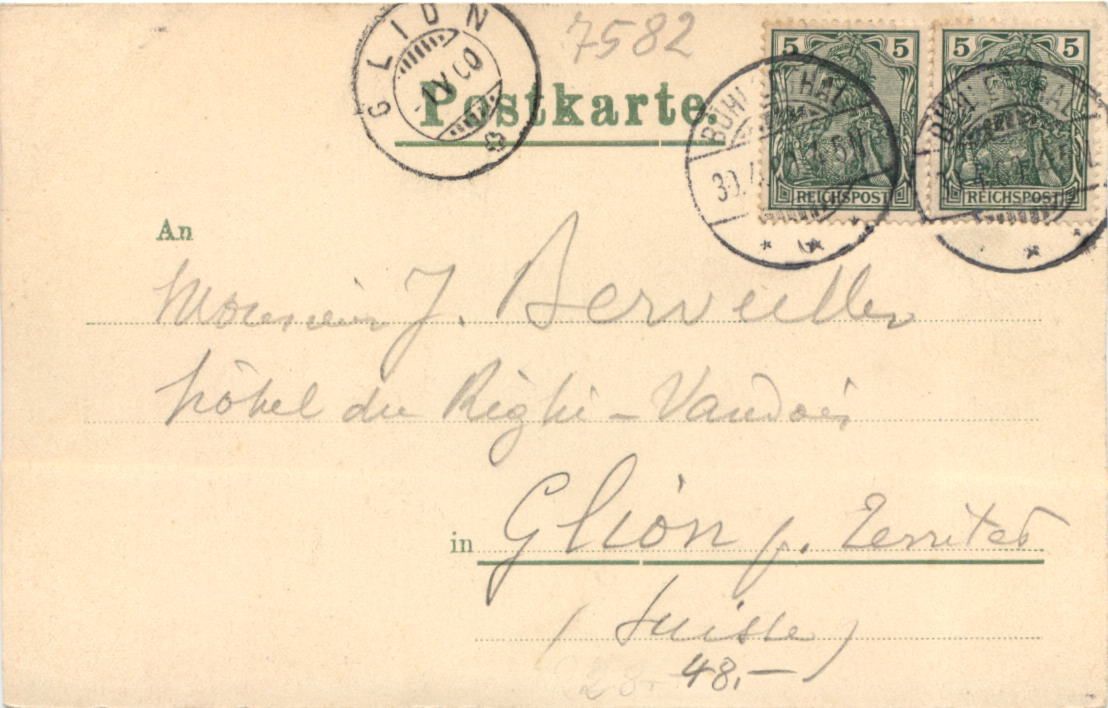 GLION
7582
1 V 00
5 5 5 5
Postkarte.
BÜHLERTHAL
30.4.
REICHSPOST REICHSPOST
An
Monsieur J.
hôtel du Righi-Vaudois
in Glion p. Territet
(Suisse)
28. 48.-